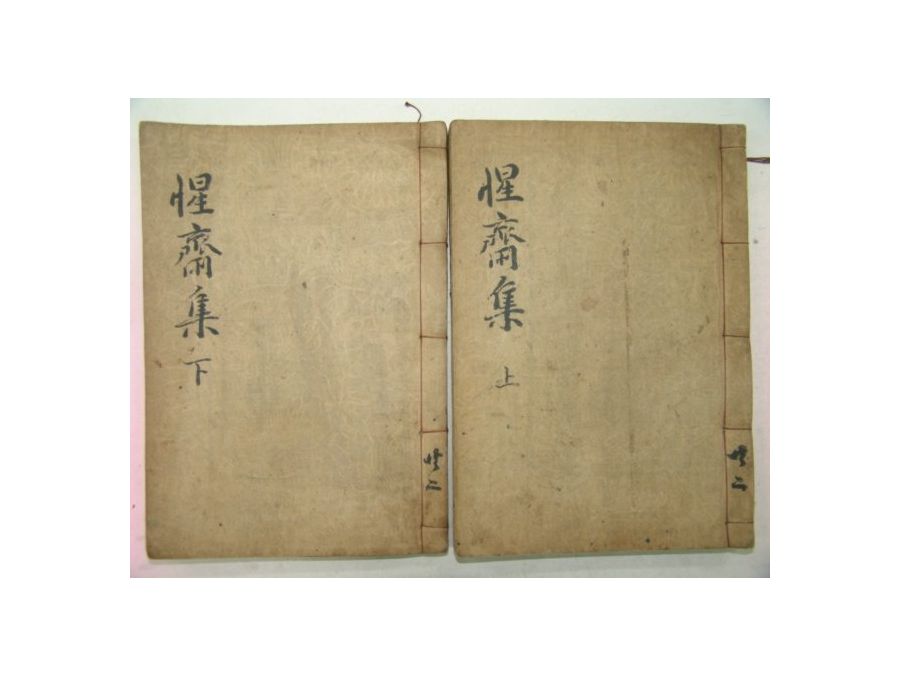 惺齋集 上
共二
惺齋集 下
共二